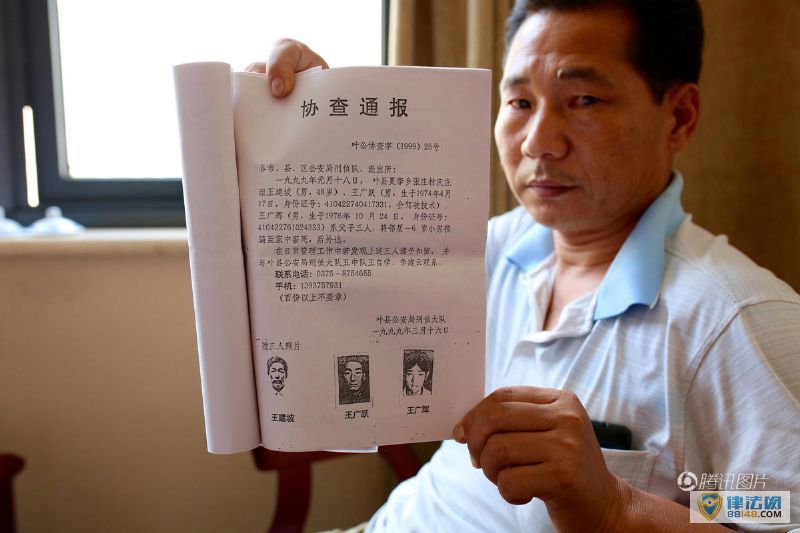 协查通报
叶公协查字(1999)25号
各市、县、区公安局刑侦队、派出所:
一九九九年元月十八日,叶县夏李乡张庄村庆庄
组王建坡(男,48岁)、王广跃(男,生于1974年4月
17日,身份证号:410422740417331,会驾驶技术)、
王广辉(男,生于1976年10月24日,身份证号:
410422761024333)系父子三人,将邻居一6岁小男孩
骗至家中害死,后外逃。
在日常管理工作中若发现上述三人请予扣留,并
与叶县公安局刑侦大队五中队王自学、李建云联系。
联系电话:0375-8754655
手机:1393757931
(百份以上不盖章)
叶县公安局刑侦大队
一九九九年三月十六日
附三人照片
王建坡 王广跃 王广辉
腾讯图片
律法网
88148.COM